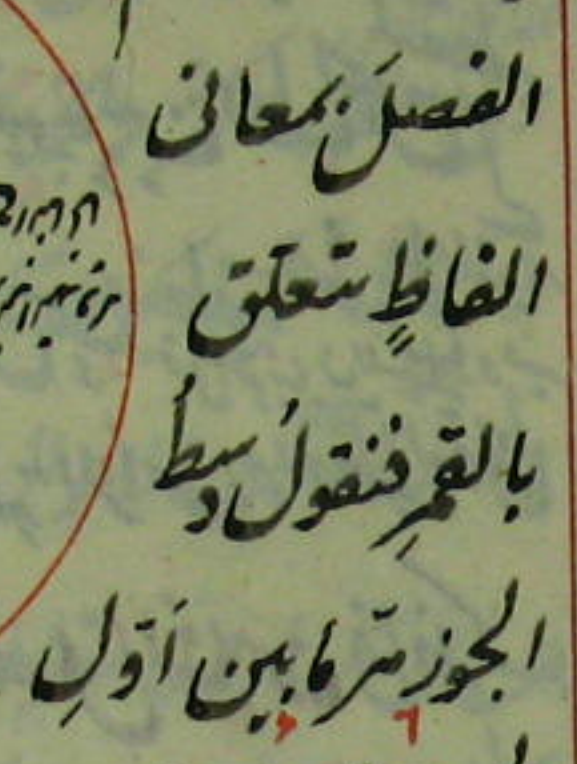 الفصلَ بمعانى
الفاظٍ تتعلق
بالقمرِ فنقولُ وسطُ
الجوزهر ما بين اَوّلِ